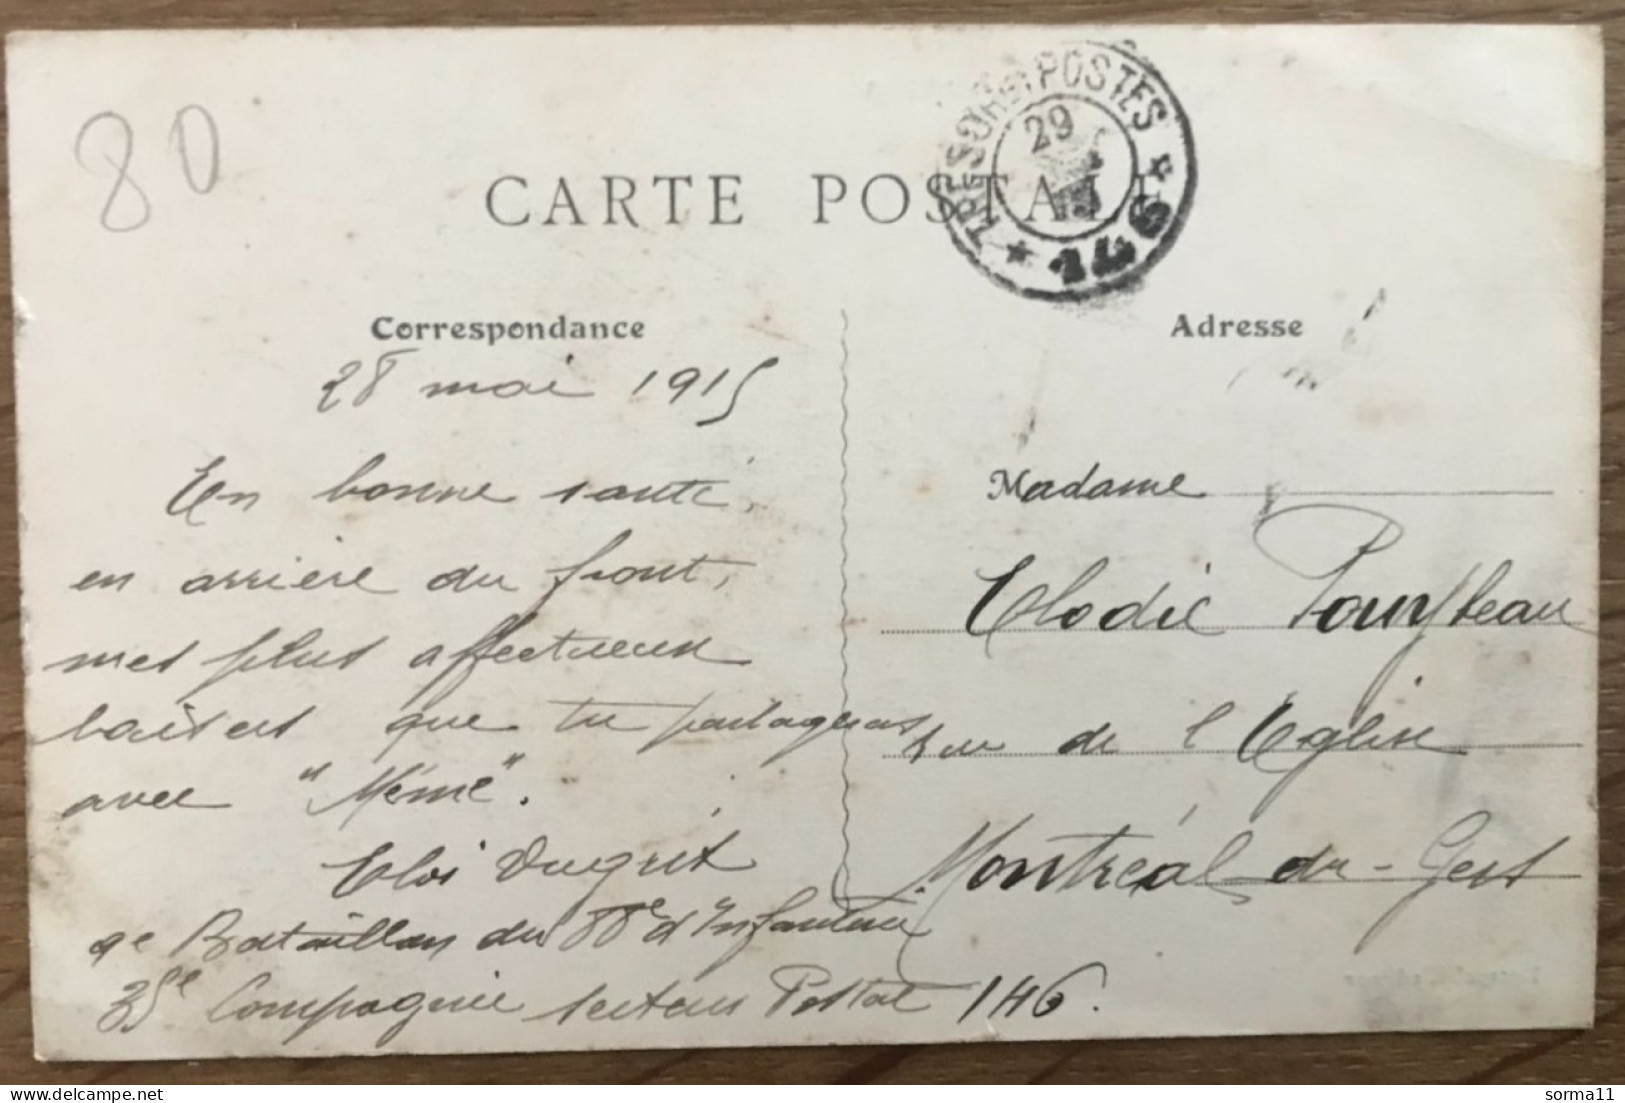 80
CARTE POSTALE
TRESOR ET POSTES
29
* 146 *
Correspondance
28 mai 1915
En bonne santé,
en arrière du front,
mes plus affectueux
baisers que tu partageras
avec "Mémé".
Eloi Dugrit
9e Bataillon du 88e d'Infanterie
35e Compagnie secteur Postal 146.
Adresse
Madame
Elodie
rue de l'Eglise
Montréal-du-Gers
sorma11